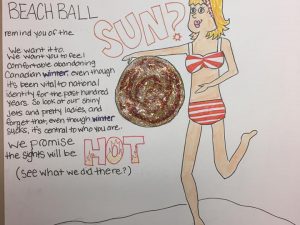 BEACH BALL
remind you of the
SUN?
We want it to.
We want you to feel
comfortable abandoning
Canadian winter, even though
it's been vital to national
identity for the past hundred
years. So look at our shiny
jets and pretty ladies, and
forget that, even though winter
sucks, it's central to who you are.
We promise
the sights will be HOT
(see what we did there?)